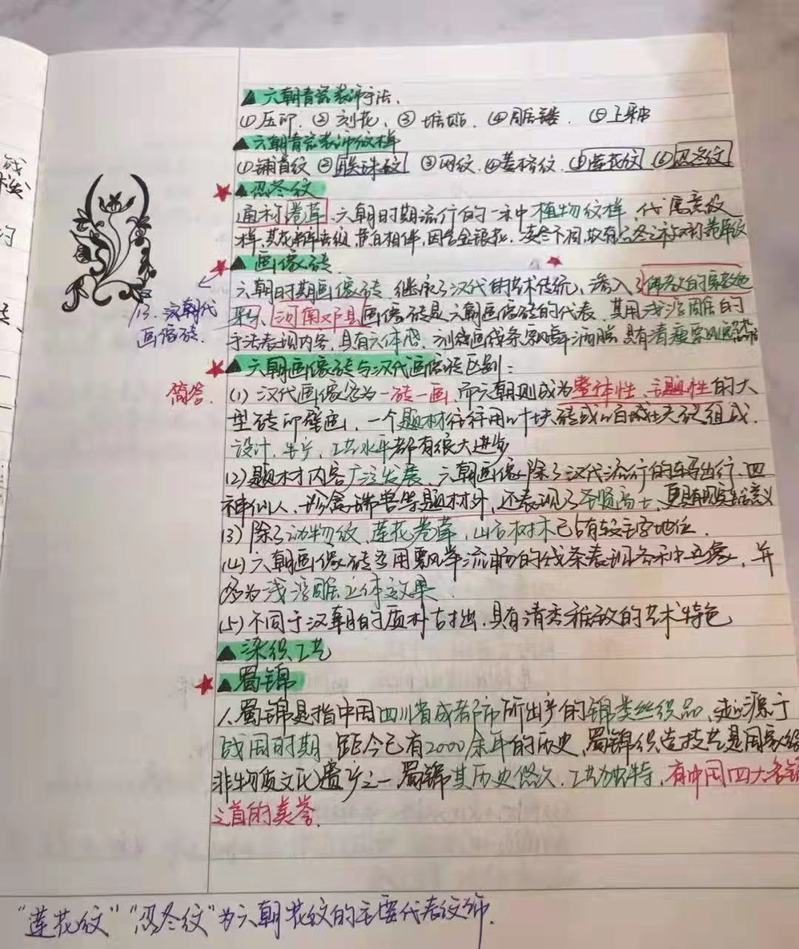 ▲六朝青瓷装饰手法.
①压印 ②刻花 ③堆贴 ④ ⑤上彩
▲六朝青瓷装饰纹样
①铺首纹 ②联珠纹 ③网纹 ④菱格纹 ⑤莲花纹 ⑥忍冬纹
★▲忍冬纹
通称卷草.六朝时期流行的一种植物纹样,代
样,
★▲画像砖.
六朝时期画像砖,继承了汉代的艺术传统,渗入了佛教的
河南邓县画像砖是六朝画像砖的代表.其用浅浮雕的
手法表现内容,具有立体感.刻线线条飘举洒脱,具有清瘦
13. 汉朝代
画像砖.
★▲六朝画像砖与汉代画像砖区别:
简答.
(1)汉代画像多为一砖一画,而六朝则成为整体性、主题性的大
型砖印壁画,一个题材往往用几十块砖或几百块砖组成.
设计,生产,工艺水平都有很大进步
(2)题材内容广泛发展,六朝画像除了汉代流行的车马出行,四
神仙人,珍禽瑞兽等题材外,还表现了高士,更具现实意义
(3)除了动物纹,莲花卷草,山石树木已占有较主要地位.
(4)六朝画像砖多用飘举流畅的线条表现各种形象,并
多为浅浮雕立体效果.
(5)不同于汉朝的质朴古拙,具有清秀雅致的艺术特色
▲染织工艺
★▲蜀锦
1.蜀锦是指中国四川省成都市所出产的锦类丝织品,起源于
战国时期,距今已有2000余年的历史,蜀锦织造技艺是国家级
非物质文化遗产之一.蜀锦其历史悠久,工艺独特,有中国四大名锦
之首的美誉.
"莲花纹""忍冬纹"为六朝花纹的主要代表纹饰.